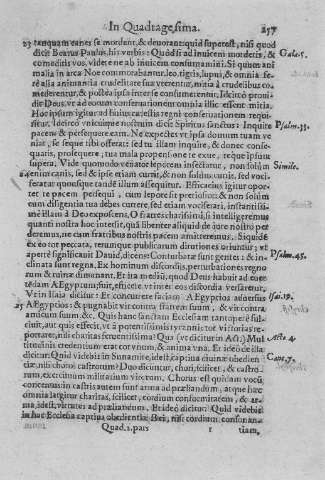 In Quadragesima. 257
23 tanquam canes se mordent, & deuorant: quid superest, nisi quod
dicit Beatus Paulus, his verbis: Quod si ad inuicem mordetis, & Gala. 5.
comeditis vos, videte ne ab inuicem consumamini. Si quum ani
malia in arca Noe commorabantur, leo, tigris, lupus, & omnia fe-
ræ alia animantia crudelitate sua vterentur, mitia à crudelibus co-
mederentur, & postea ipsa inter se consumerentur: Idcirco proui-
dit Deus, vt ad eorum conseruationem omnia illic essent mitia.
Hoc ipsum igitur ad huius cælestis regni conseruationem requi-
ritur. Idcirco vnicuique nostrum dicit Spiritus sanctus: Inquire Psalm. 33.
pacem & persequere eam. Ne expectes vt ipsa domum tuam ve
niat, se seque tibi offerat: sed tu illam inquire, & donec conse-
quaris, prosequere, tua mala propensione te exue, teque ipsum
supera. Vide quomodo venator leporem insectatur, non solùm Simile.
24 canis, sed & ipse etiam currit, & non solùm currit, sed voci-
feratur quousque tandē illum assequitur. Efficacius igitur opor-
tet te pacem persequi, cum lepore sit pretiosior: & non solùm
cum diligentia tua debes currere, sed etiam vociferari, instantissi-
mè illam à Deo exposcens. O fratres charissimi, si intelligeremus
quanti nostra hoc intersit, quà libenter aliquid de iure nostro per
deremus, ne eam tribus nostris pacem amitteremus. Siquidē
ex eo tot peccata, rerumque publicarum dirutiones oriuntur: vt
apertè significauit Dauid, dicens: Conturbatæ sunt gentes: & in- Psalm. 45.
clinata sunt regna. Ex hominum discordiis, perturbationes regno
rum & ruinæ dimanant. Et ita mediū, quod Deus habuit ad euer
tēdam AEgyptum, fuit, efficere, vt inter eos discordia versaretur.
Vt in Isaia dicitur: Et concurrere faciam AEgyptios aduersus Isai. 19.
25 AEgyptios: & pugnabit vir contra fratrem suum, & vir contra
amicum suum, &c. Quis hanc sanctam Ecclesiam tantopere ful-
cit, aut quis effecit, vt à potentissimis tyrannis tot victorias re-
portaret, nisi charitas feruentissima? Qui (vt dicitur in Act.) Mul Acto. 4.
titudinis credentium erat cor vnum, & anima vna. Et ideò de illa
dicitur: Quid videbis in Sunamite, idest, captiua ciuina obedientię, Cant. 7.
nisi choros castrorum? Duo dicuntur, chori, scilicet, & castro-
rum. Exercituum militarium vicerum. Chorus est quidam vocū
concentus: in castris autem sunt arma ad præliandum, atque hæc
omnia largitur charitas, scilicet, cordium conformitatem, & ar-
ma, idest, virtutes ad præliandum. Et ideò dicitur: Quid videbis
in hac Ecclesia captiua obedientiæ Dei, nisi cordium consonan-
Quad. 2. pars r tiam,